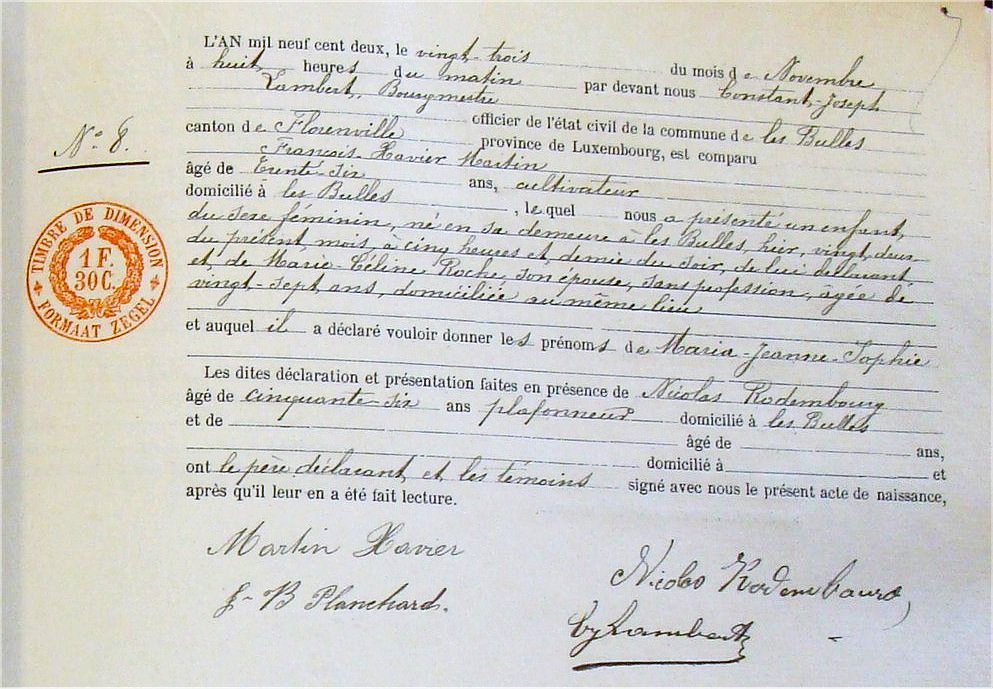 L'AN mil neuf cent deux, le vingt-trois du mois de Novembre
à huit heures du matin par devant nous Constant-Joseph
Lambert, Bourgmestre
officier de l'état civil de la commune de les Bulles
canton de Florenville province de Luxembourg, est comparu
François-Xavier Martin
âgé de trente-six ans, cultivateur
domicilié à les Bulles, lequel nous a présenté un enfant,
du sexe féminin, né en sa demeure à les Bulles, hier, vingt-deux
du présent mois, à cinq heures et demie du soir, de lui déclarant
et de Marie-Céline Roche, son épouse, sans profession, âgée de
vingt-sept ans, domiciliée au même lieu
et auquel il a déclaré vouloir donner les prénoms de Maria-Jeanne-Sophie
Les dites déclaration et présentation faites en présence de Nicolas Rodembourg
âgé de cinquante-six ans plafonneur domicilié à les Bulles
et de
âgé de ans,
domicilié à et
ont le père déclarant et les témoins signé avec nous le présent acte de naissance,
après qu'il leur en a été fait lecture.
N° 8.
TIMBRE DE DIMENSION
1 F.
30 C.
FORMAAT ZEGEL
Martin Xavier
J-B Planchard.
Rodembourg
Lambert